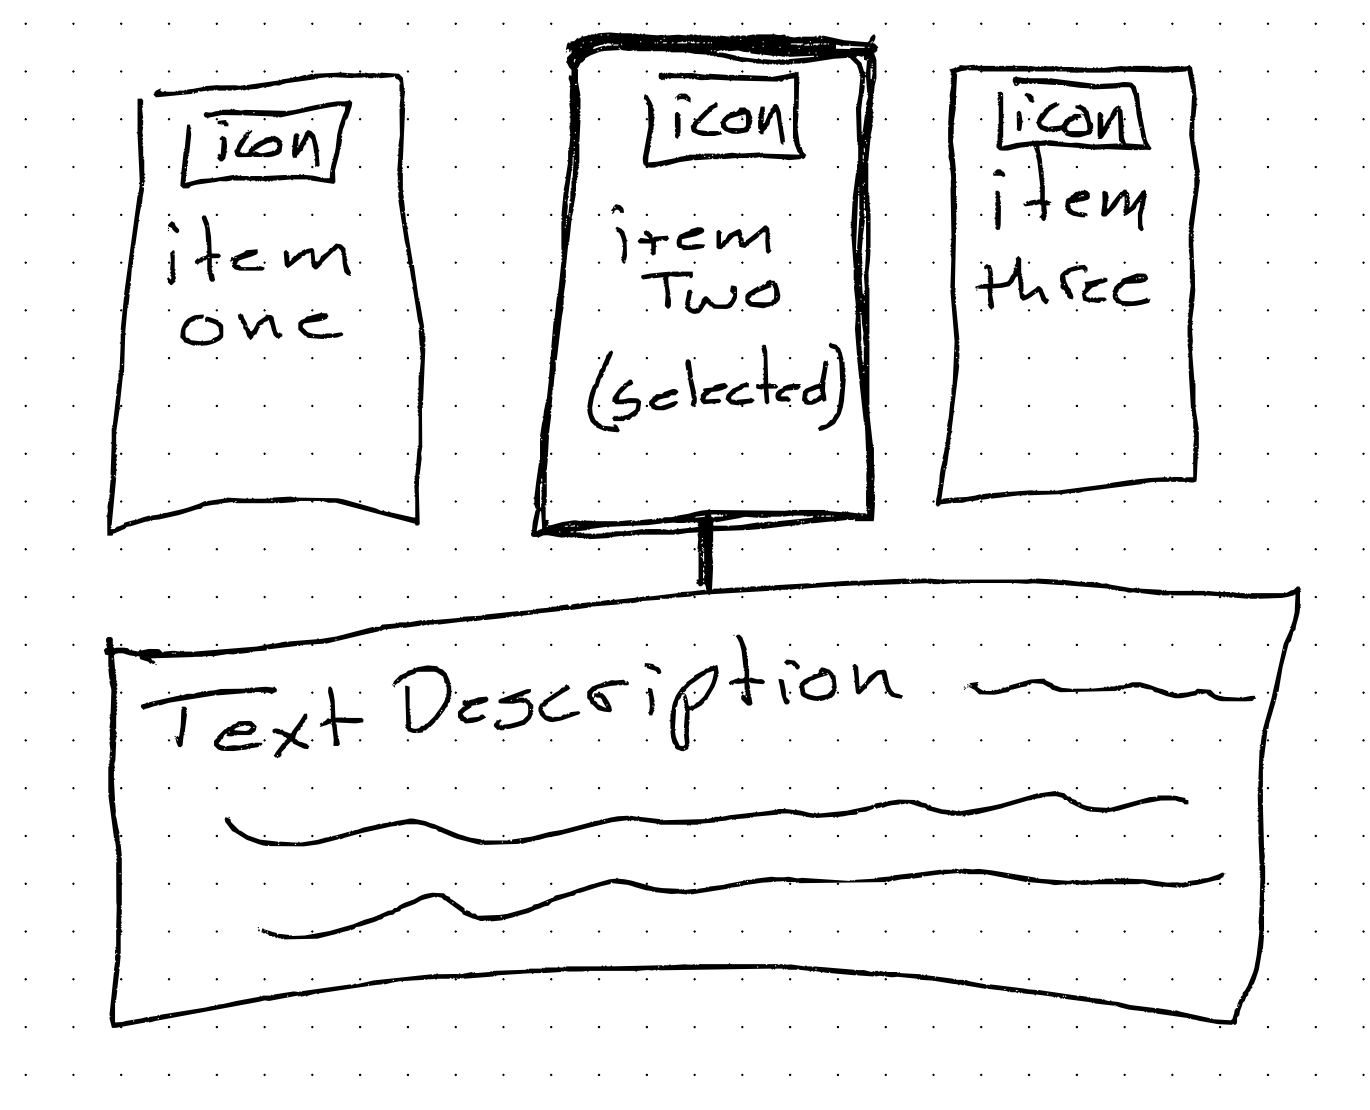 icon
item
one
icon
item
Two
(selected)
icon
item
three
Text Description